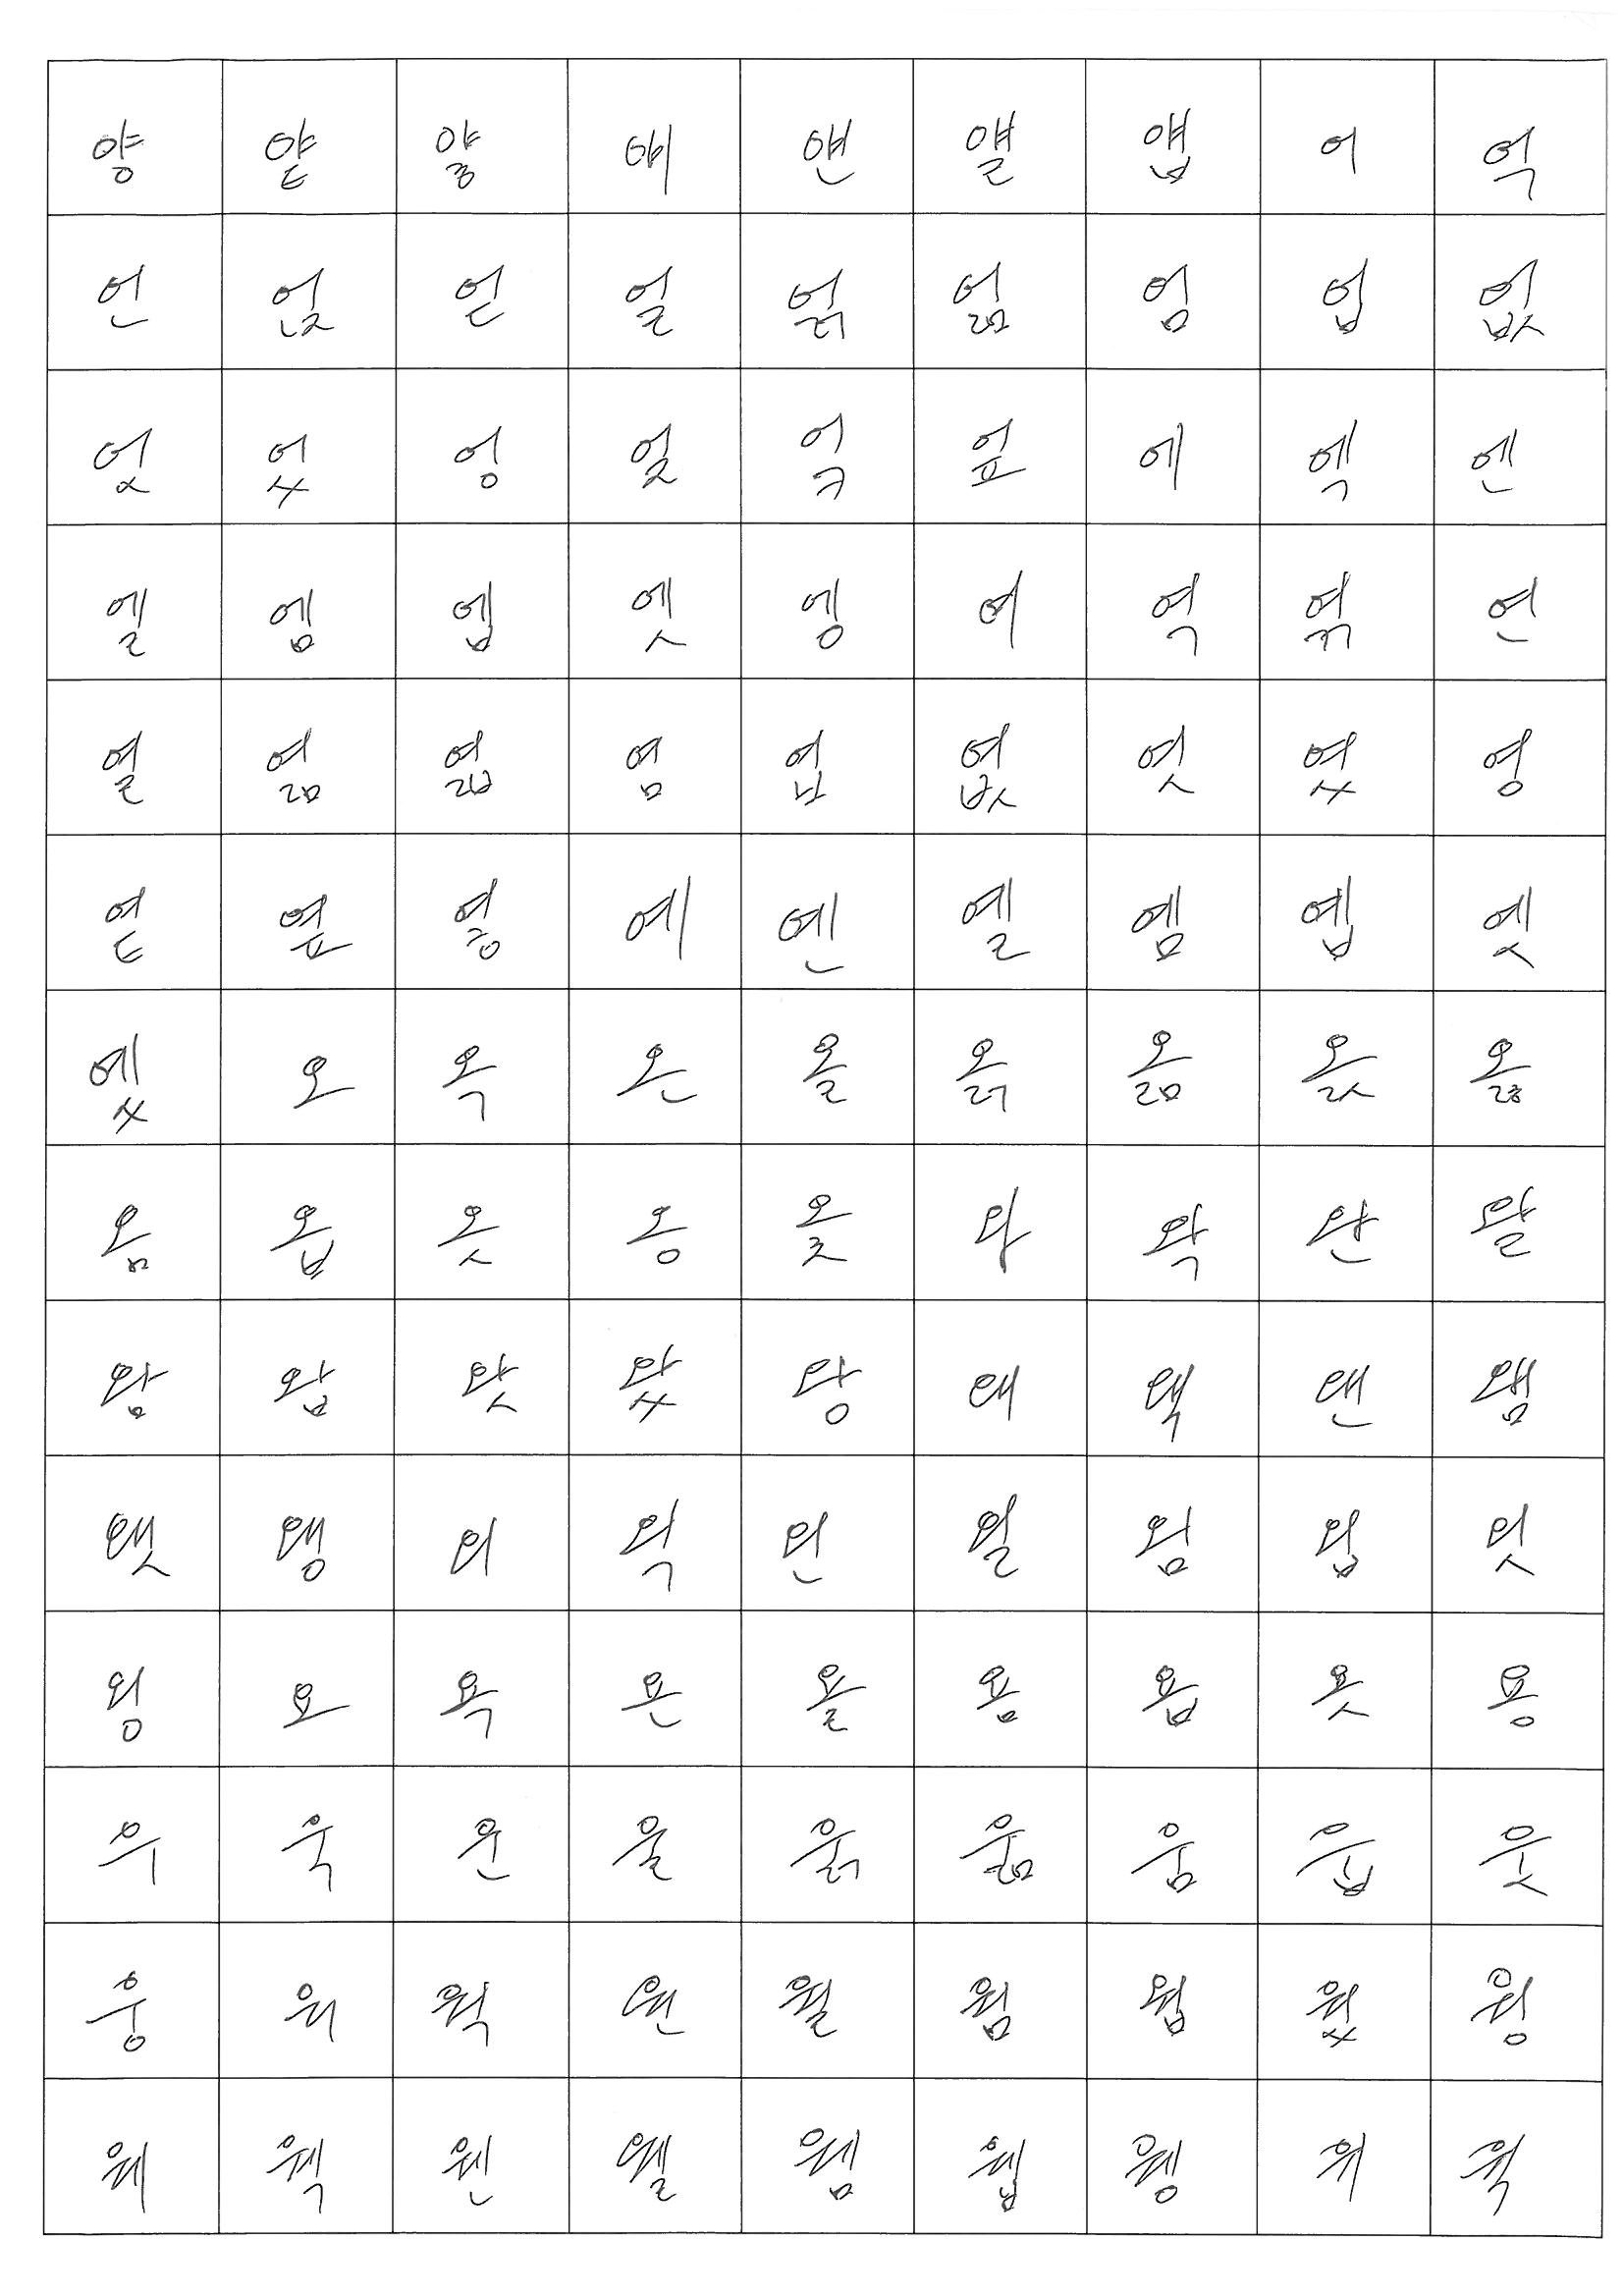 양 얕 얗 얘 얜 얠 얩 어 억
언 얹 얻 얼 얽 엄 엄 업 없
엇 었 엉 엊 엌 엎 에 엑 엔
엘 엠 엡 엣 엥 여 역 엮 연
열 엶 엷 염 엽 엾 엿 였 영
옅 옆 옇 예 옌 옐 옘 옙 옛
옜 오 옥 온 올 옭 옮 옰 옳
옴 옵 옷 옹 옻 와 왁 완 왈
왐 왑 왓 왔 왕 왜 왝 왠 왬
왯 왱 외 왹 왼 욀 욈 욉 욋
욍 요 욕 욘 욜 욤 욥 욧 용
우 욱 운 울 욹 욺 움 웁 웃
웅 워 웍 원 월 웜 웝 웠 웡
웨 웩 웬 웰 웸 웹 웽 위 윅